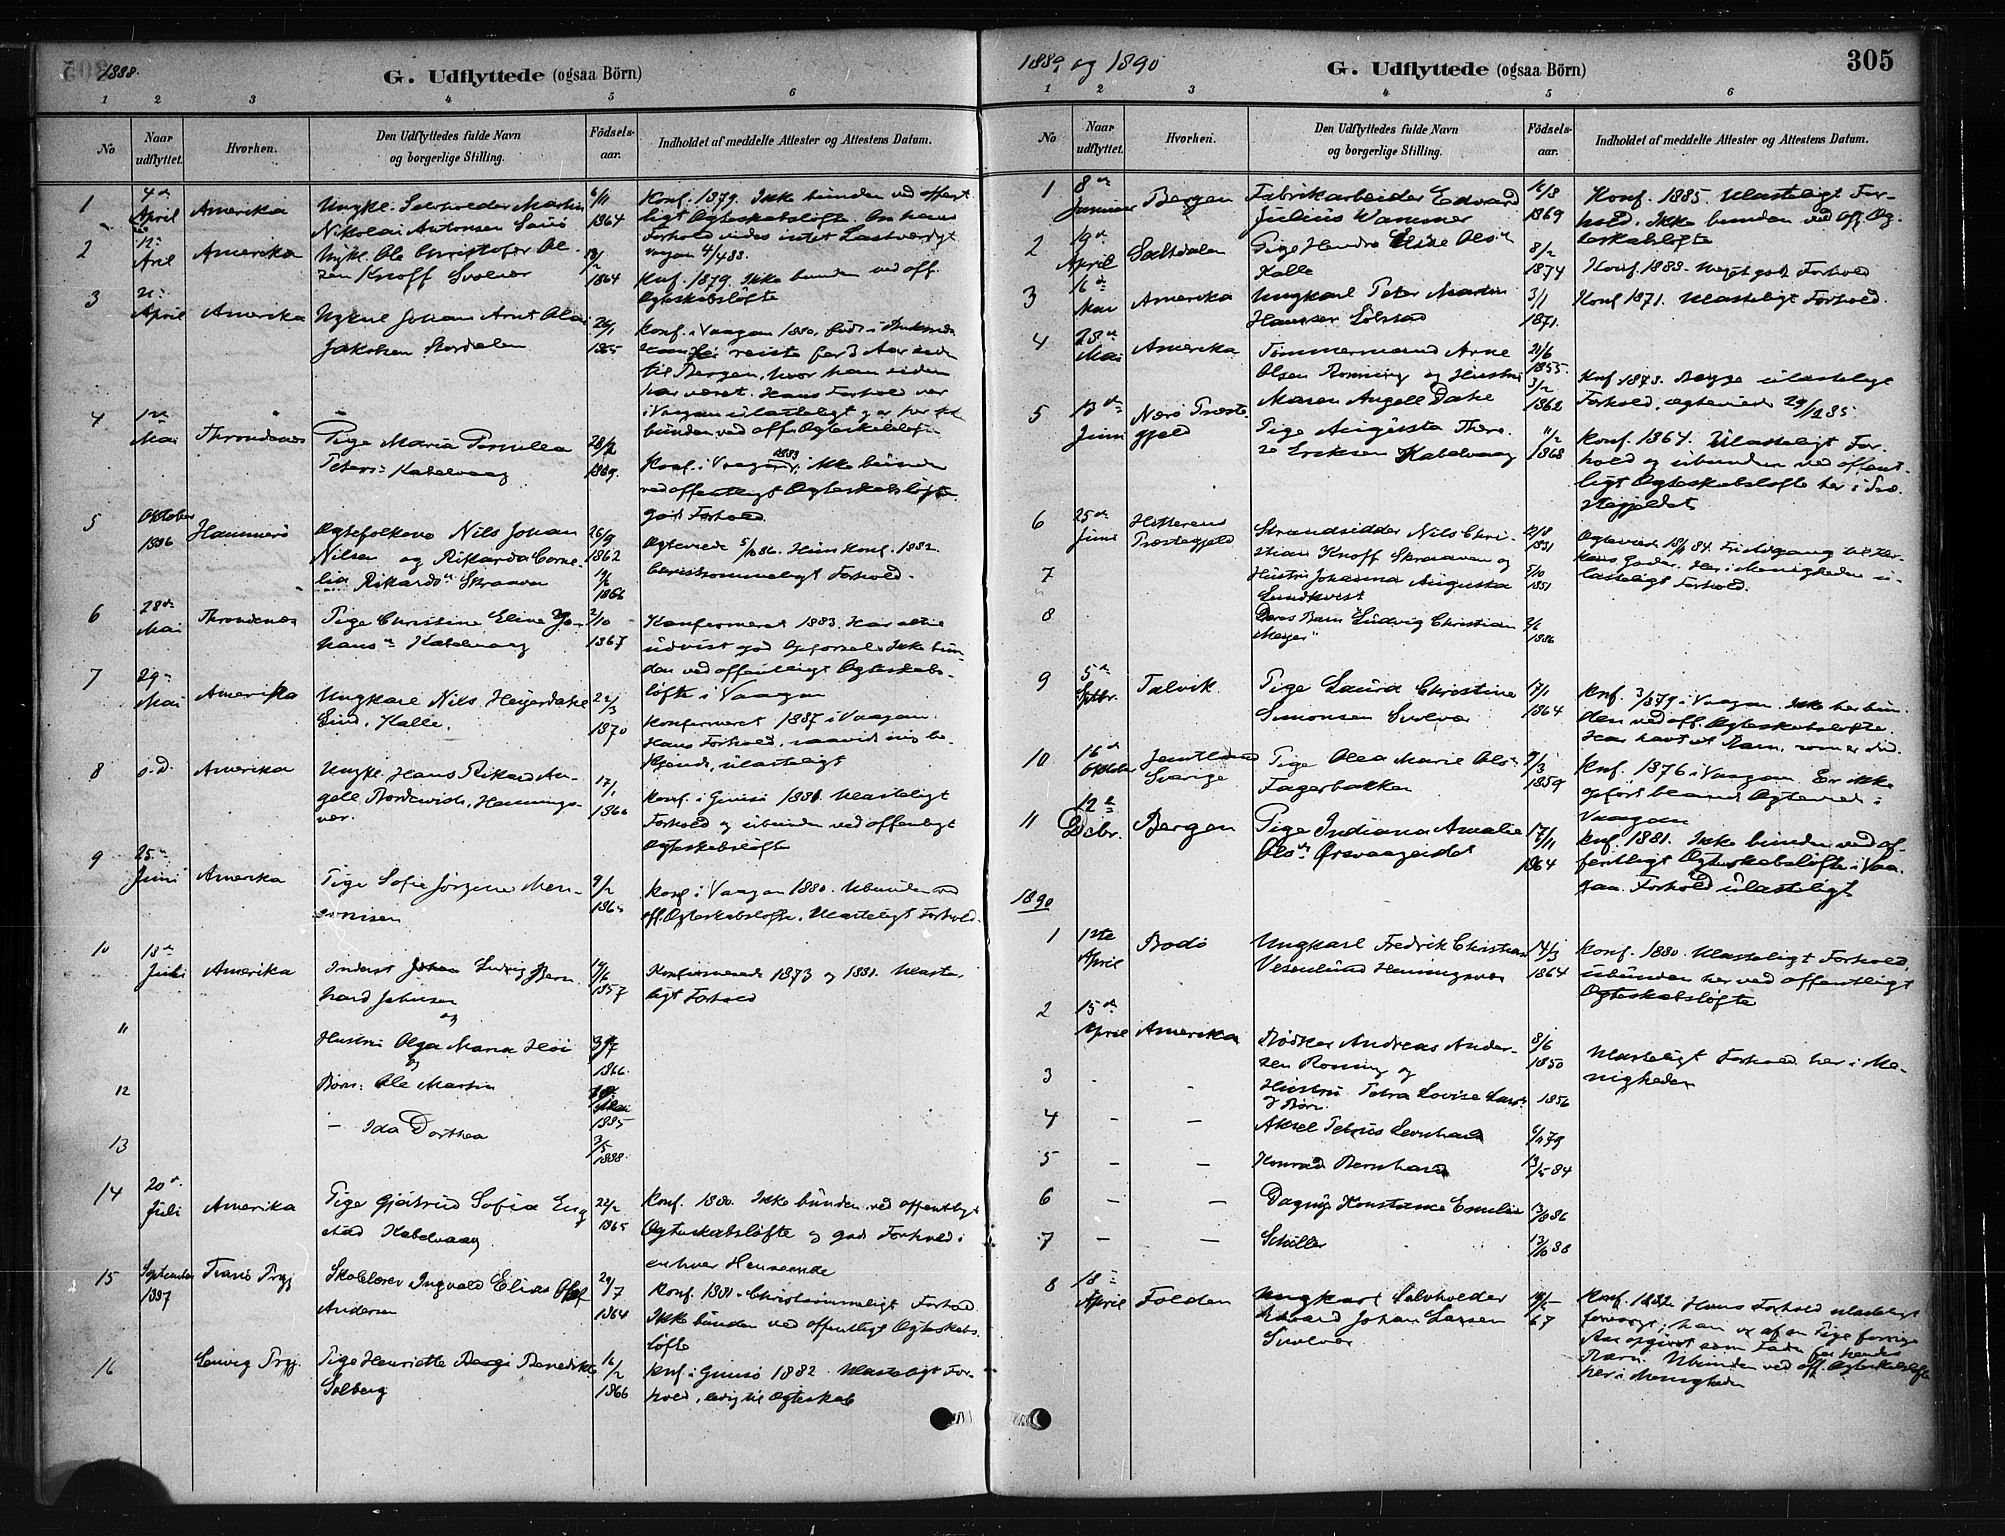 1888.
G. Udflyttede (ogsaa Börn)
1 2 3 4 5 6
No
Naar udflyttet.
Hvorhen.
Den Udflyttedes fulde Navn
og borgerlige Stilling.
Födsels-
aar.
Indholdet af meddelte Attester og Attestens Datum.
1 4de April Amerika Ungkl. Selvholder Martin
Nikolai Antonsen
6/11 1864
Konf. 1879. Ikke bunden ved offent
ligt Ægteskabsløfte. Om hans
Forhold vides intet Lastværdigt
Vaagan 4/4 88.
2 April Amerika Ungkl. Ole Christofer Ol-
sen Knoff Svolvær
1864
Knf. 1879. Ikke bunden ved off.
Ægteskabsløfte
3 April Amerika Johan Arnt Olai
Jakobsen Stordalen
26/1 1865
Konf. i Vaagan 1880, født i
reiste for 3 Aar siden
til Bergen, hvor han siden
har været. Hans Forhold var
i Vaagan ulasteligt
bunden ved off. Ægteskabsløfte
4 1ste Mai Throndenæs Pige Maria Pernilla
Peters: Kabelvaag
28/2 1869.
Konf. i Vaagan 1883, ikke bunden
ved offentligt Ægteskabsløfte
godt Forhold.
5 Oktober 1886 Hammerø Ægtefolkene Nils Johan
Nilsen og Rikkarda Corne-
lia Rikards Skraaven
26/9 1862
1866
Ægteviede 5/10 86. Konf. 1882.
Forhold.
6 28de Mai Throndenæs Pige Christine Eline Jo-
hans Kabelvaag
2/10 1867
Konfirmeret 1883. Har altid
udvist god Opførsel. Ikke bun-
den ved offentligt Ægteskabs-
løfte i Vaagan
7 29de Mai Amerika Ungkarl Nils Heyerdahl
Lind, Kalle.
22/3 1870
Konfirmeret 1887 i Vaagan.
Hans Forhold, saavidt mig be-
kjendt, ulasteligt
8 s.d. Amerika Ungkl. Hans Rikard An-
gell Bordevich, Hennings-
vær.
17/1 1866
Konf. i Gimsø 1881. Ulasteligt
Forhold og ubunden ved offenligt
Ægteskabsløfte
9 25de Juni Amerika Pige Sofie Jørgine
9/2
Konf. i Vaagan 1880. Ubunden ved
off. Ægteskabsløfte. Ulasteligt Forhold.
10 18de Juli Amerika Inderst Johan Ludvig Bern-
hard Johnsen
og
1857
Konfirmerede 1873 og 1881. Ulaste-
ligt Forhold
11 Hustru Olga Maria Høi
og
1866.
12 Børn: Ole Martin
1885
13 — Ida Dorthea
3/5 1888.
14 20de Juli Amerika Pige Gjertrud Sofia Eng
stad Kabelvaag
22/2 1865
Konf. 1880. Ikke bunden ved offentligt
Ægteskabsløfte og god Forhold i
enhver Henseende
15 September 1887 Pregj Skolelærer Ingvald Elias Olaf
Andersen
29/7 1864
Konf. 1880. Christsømmeligt Forhold.
Ikke bunden ved offentligt Ægteskabs-
løfte
16 Lenvig Pregj. Pige Henriette Bergi Benedikte
Solberg
16/2 1866
Knf. i Gimsø 1882. Ulasteligt For-
hold, ledig til Ægteskab
1889 og 1890
G. Udflyttede (ogsaa Börn)
305
1 2 3 4 5 6
No
Naar udflyttet.
Hvorhen.
Den Udflyttedes fulde Navn
og borgerlige Stilling.
Födsels-
aar.
Indholdet af meddelte Attester og Attestens Datum.
1 8de Januar Bergen Fabrikarbeider Edvard
Julius Wammer
16/8 1869
Konf. 1885. Ulasteligt For-
hold. Ikke bunden ved off. Æg-
teskabsløfte
2 19de April Saltdalen Pige Elise Ols
Kalle
8/2 1874
Konf. 1888. Meget godt Forhold
3 16de Mai Amerika Ungkarl Peter Martin
Hansen Solstad
3/1 1871.
Konf 1871. Ulasteligt Forhold.
4 28de Mai Amerika Tømmermand Arne
Olsen Rønning og Hustru
Maren Angell Dahl
21/6 1855.
3/2 1862
Knf. 1873. Begge ulasteligt
Forhold, Ægteviede 29/12 85
5 13de Juni Nærø Præste
gjeld
Pige Augusta There-
se Eriksen Kabelvaag
11/2 1868
Konf. 1864. Ulasteligt For-
hold og ubunden ved offent-
ligt Ægteskabsløfte her i Præ-
stegjeldet
6 25de Juni Hitterens
Præstegjeld
Strandsidder Nils Chri-
stian Knoff Skraaven og
1831
Ægteviede 84. Fri Adgang til Her-
rens Goder. Her i Menigheden u-
lasteligt Forhold.
7 Hustru Johanna Augusta
Lundkvist
5/10 1851
8 Deres Barn Ludvig Christian
Meyer
1886
9 5de Septbr. Talvik Pige Laura Christine
Simonsen Svolvær
17/1 1864
Knf. 1879 i Vaagan. Ikke her bun-
den ved off. Ægteskabsløfte.
Har havt et Barn, som er død.
10 16de Oktober Jemtland
Sverige
Pige Olea Marie Ols
Fagerbakken
1859
Knf. 1876 i Vaagan. Er ikke
opført blandt Ægteviede i
Vaagan
11 12te Dcbr. Bergen Pige Indiana Amalie
Ols Ørsvaageidet
17/11 1864
Knf. 1881. Ikke bunden ved of-
fentligt Ægteskabsløfte i Vaa-
gan. Forhold ulasteligt
1890
1 12te April Bodø Ungkarl Fredrik Christian
Vesterlund Henningsvær
14/3 1864
Konf. 1880. Ulasteligt Forhold,
ubunden her ved offentligt
Ægteskabsløfte
2 15de April Amerika Bødker Andreas Ander-
sen Rønning og
8/6 1850
Ulasteligt Forhold her i Me-
nigheden
3 - - Hustru Petra Lovise Lars
og Børn.
1856
4 — — Aksel Petrus Leonhard
79
5 — — Konrad Bernhard
84
6 — — Dagny Konstanse Emilie
86
7 — — Schøller
88
8 18de April Folden Ungkarl Selvholder
Edvard Johan Larsen
Svolvær
67
Konf. 1882. Hans Forhold ulasteligt
forøvrigt; han er af en Pige forrige
Aar opgivet som Fader for hendes
Barn. Ubunden ved off. Ægteskabsløfte
her i Menigheden